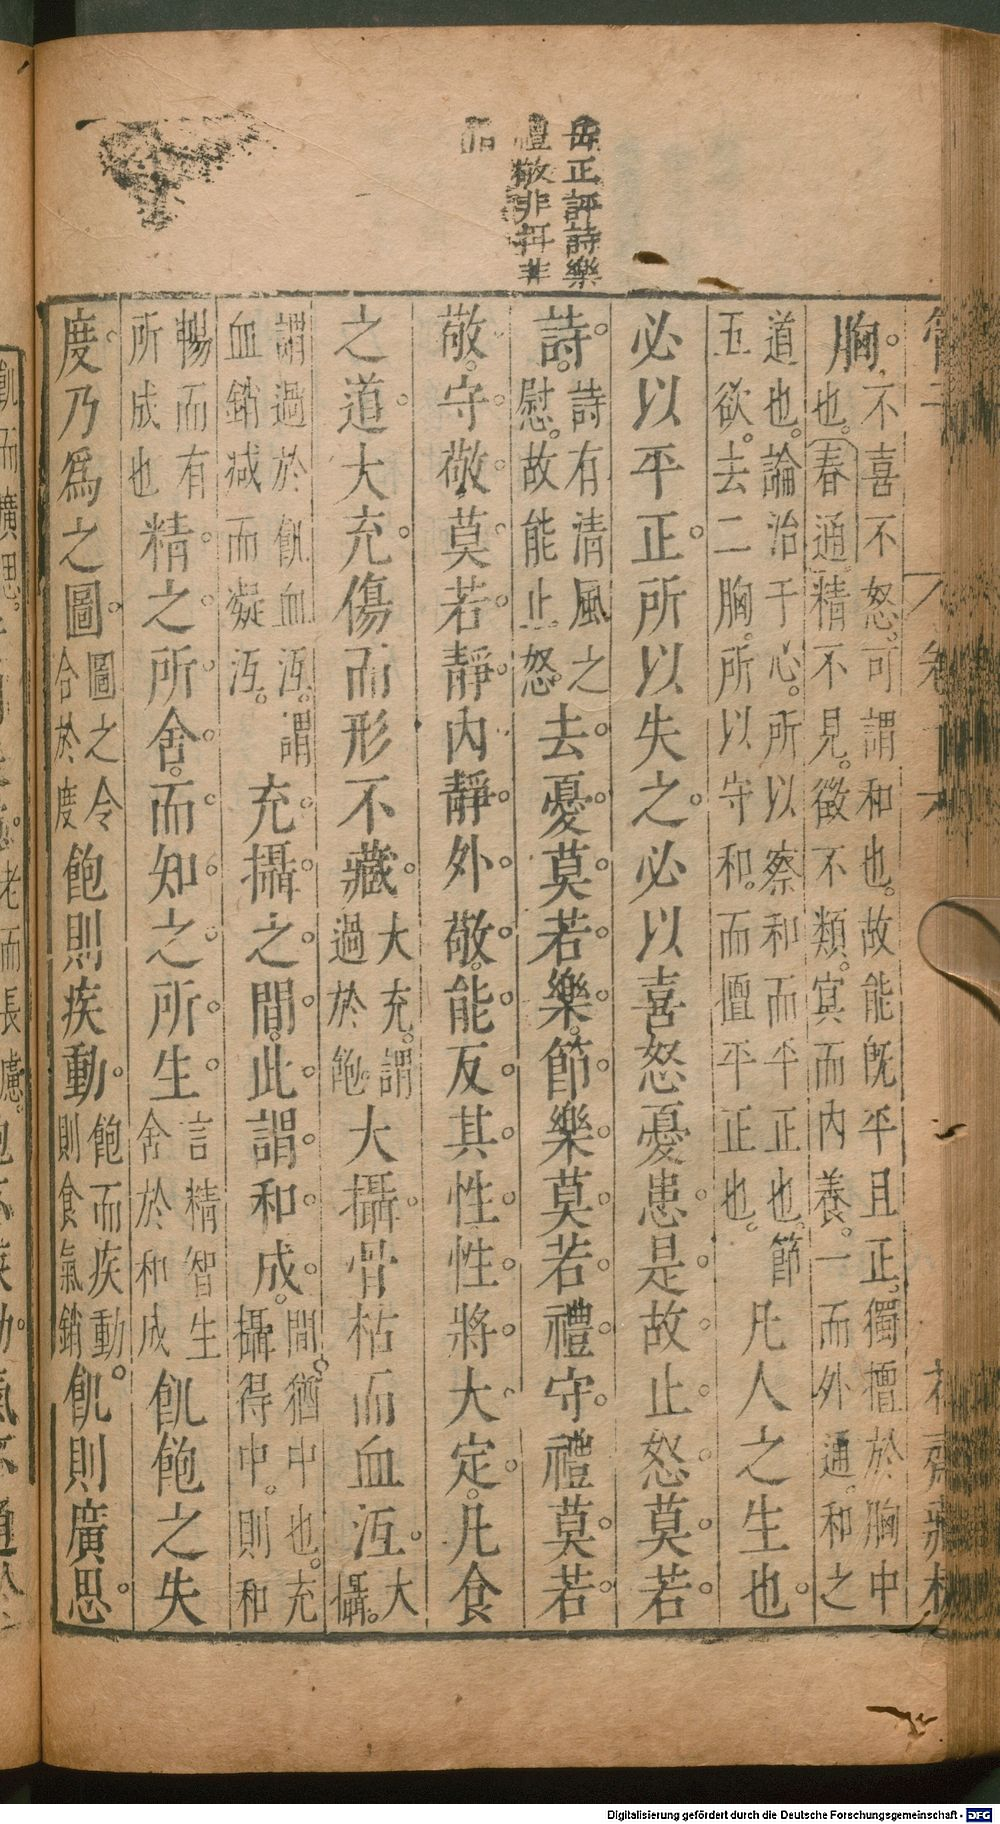 岳正評詩樂
禮敬非
胸。不喜不怒。可謂和也。故能旣平且正。獨擅於胸中
也。春通精不見。徵不類。㝠而內養。一而外通。和之
道也。論治于心。所以察和而平正也。節
五欲。去二胸。所以守和。而擅平正也。凡人之生也。
必以平正。所以失之。必以喜怒憂患是故止怒莫若
詩。詩有清風之慰。故能止怒。去憂莫若樂。節樂莫若禮守禮莫若
敬。守敬莫若靜內靜外敬。能反其性性將大定。凡食
之道。大充。傷而形不藏。大充。謂過於飽大攝骨枯而血沍。大攝。
謂過於飢血沍。謂血銷减而凝沍。充攝之間。此謂和成。間猶中也。充攝得中。則和
暢而有所成也精之所舍。而知之所生。言精智生舍於和成飢飽之失
度。乃爲之圖。圖之令合於度飽則疾動。飽而疾動則食氣銷飢則廣思。
Digitalisierung gefördert durch die Deutsche Forschungsgemeinschaft - DFG